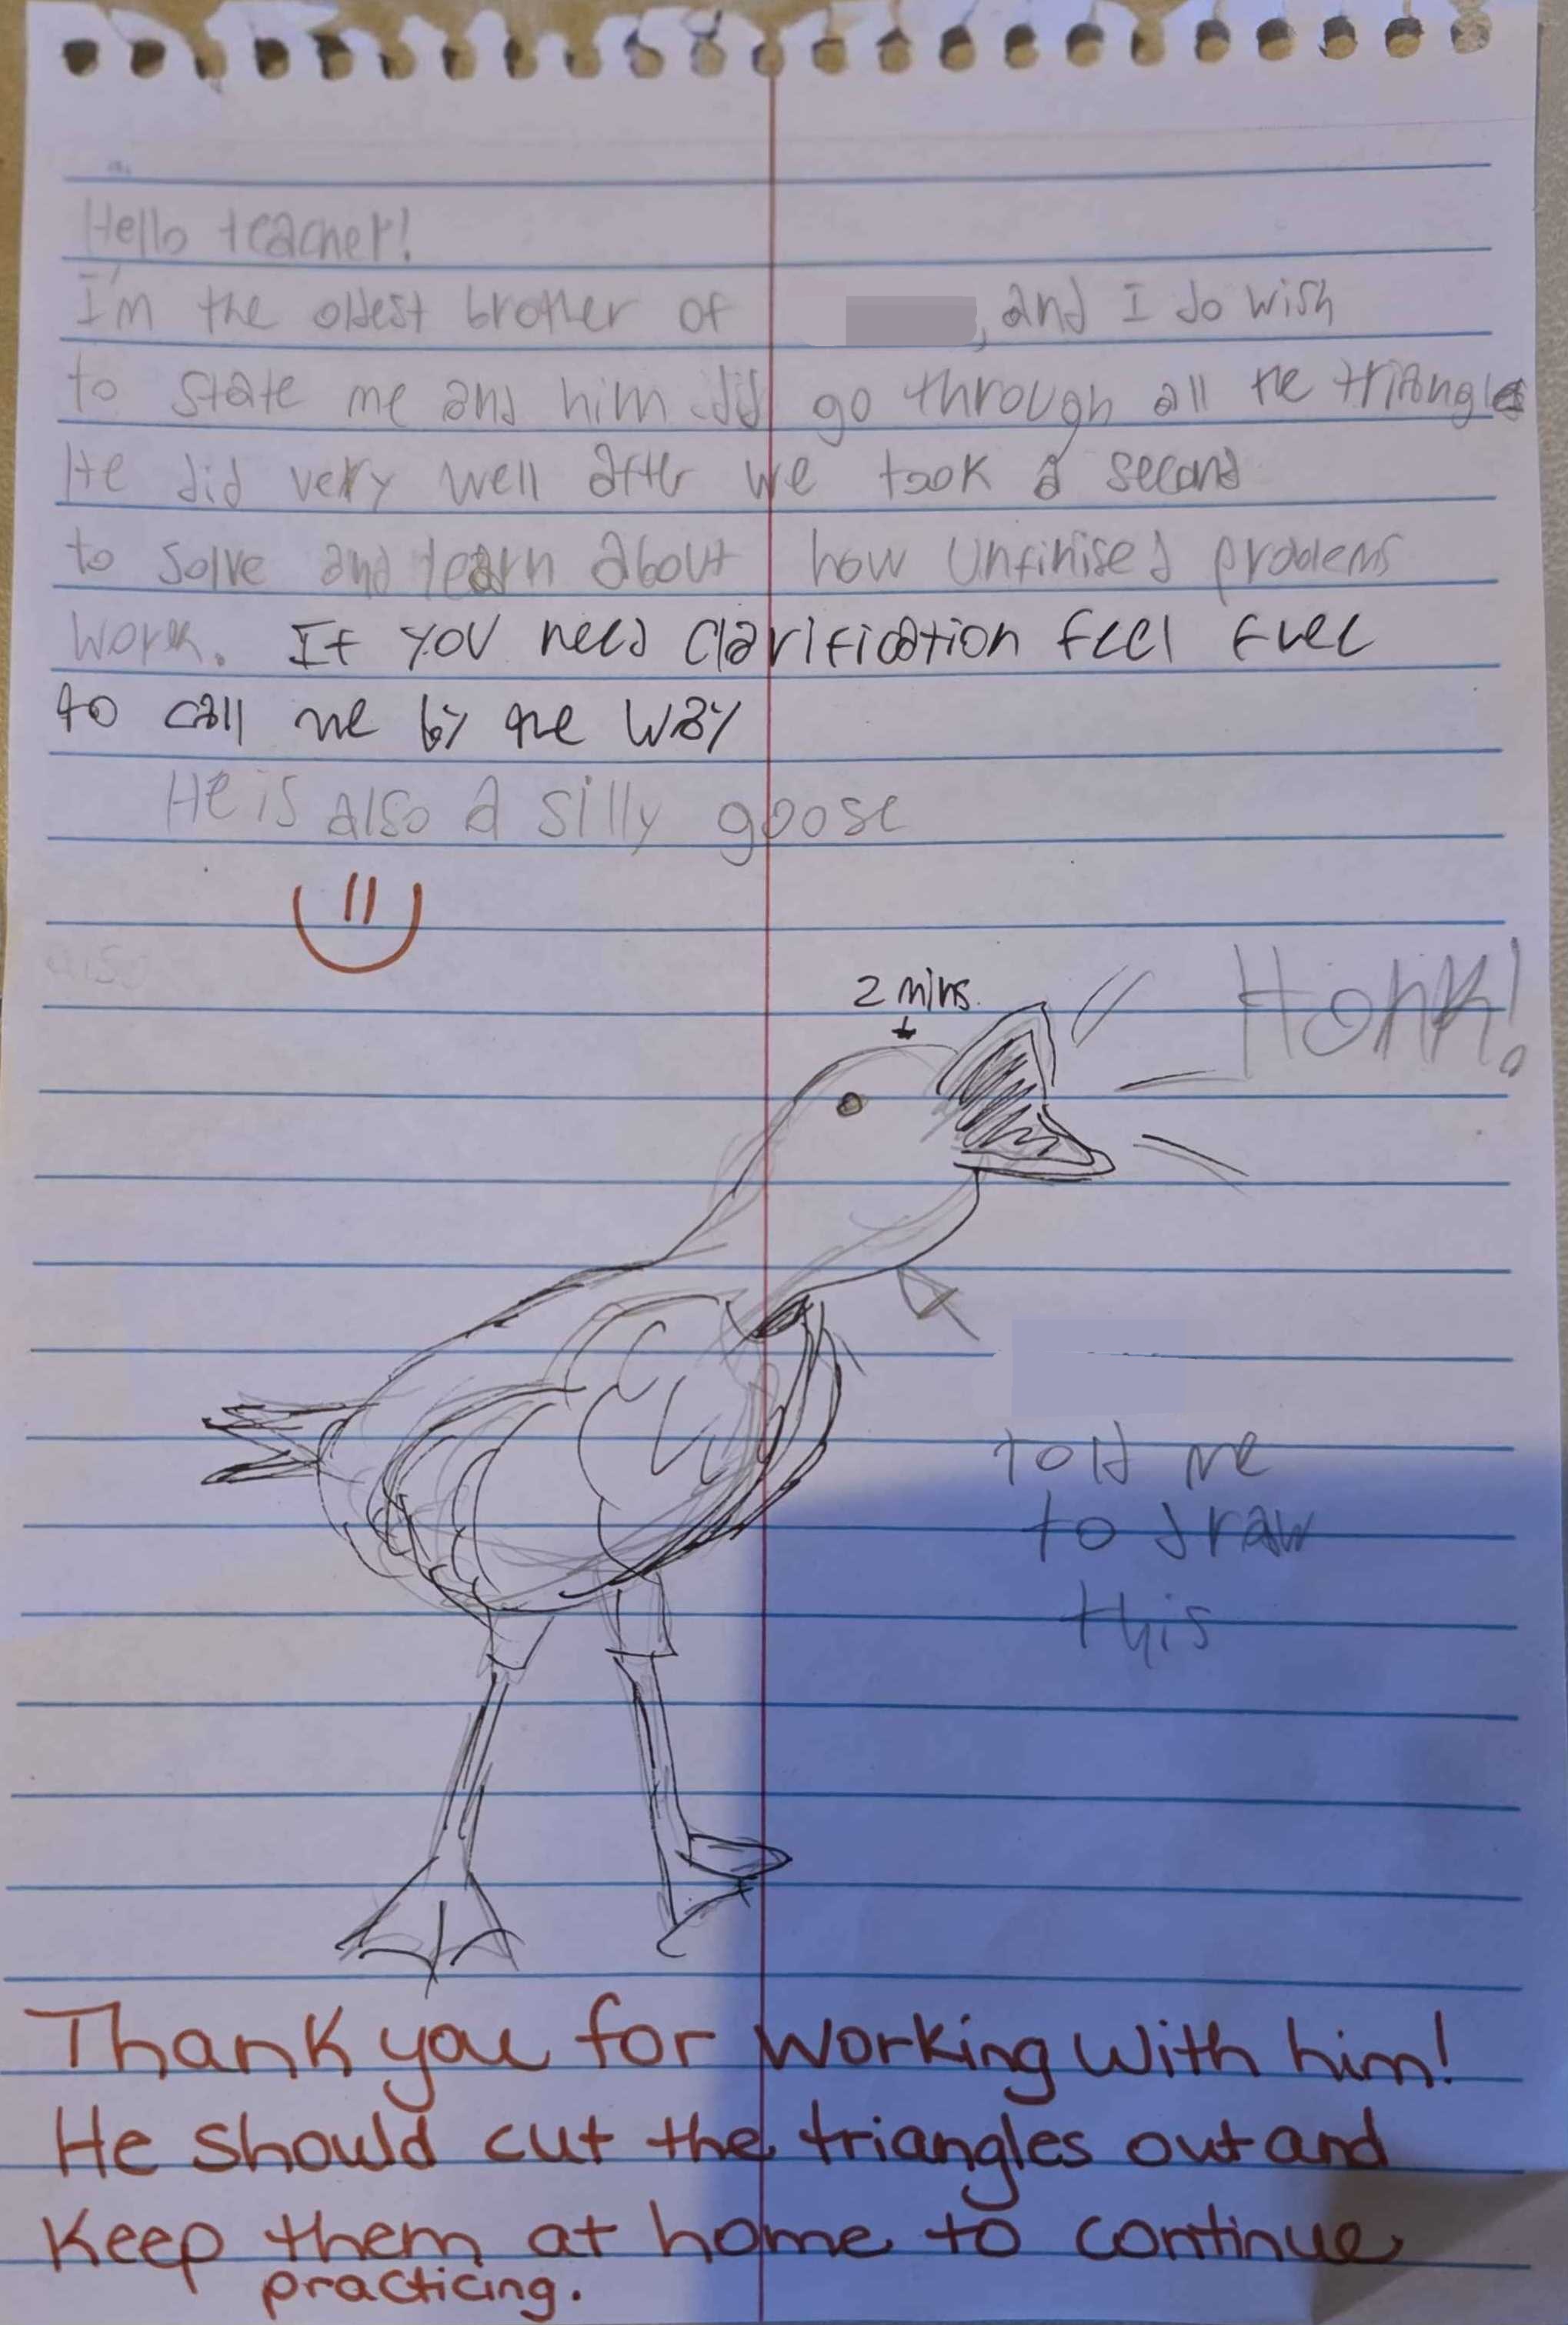 Hello teacher!
I'm the oldest brother of , and I do wish
to state me and him did go through all the triangles
He did very well after we took a second
to solve and learn about how unfinised problems
work. If you need clarification feel free
to call me by the way
He is also a silly goose
also
2 mins.
Honk!
told me
to draw
this
Thank you for working with him!
He should cut the triangles out and
Keep them at home to continue
practicing.